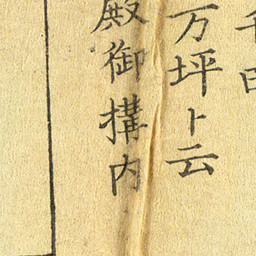 万坪ト云
殿御搆内